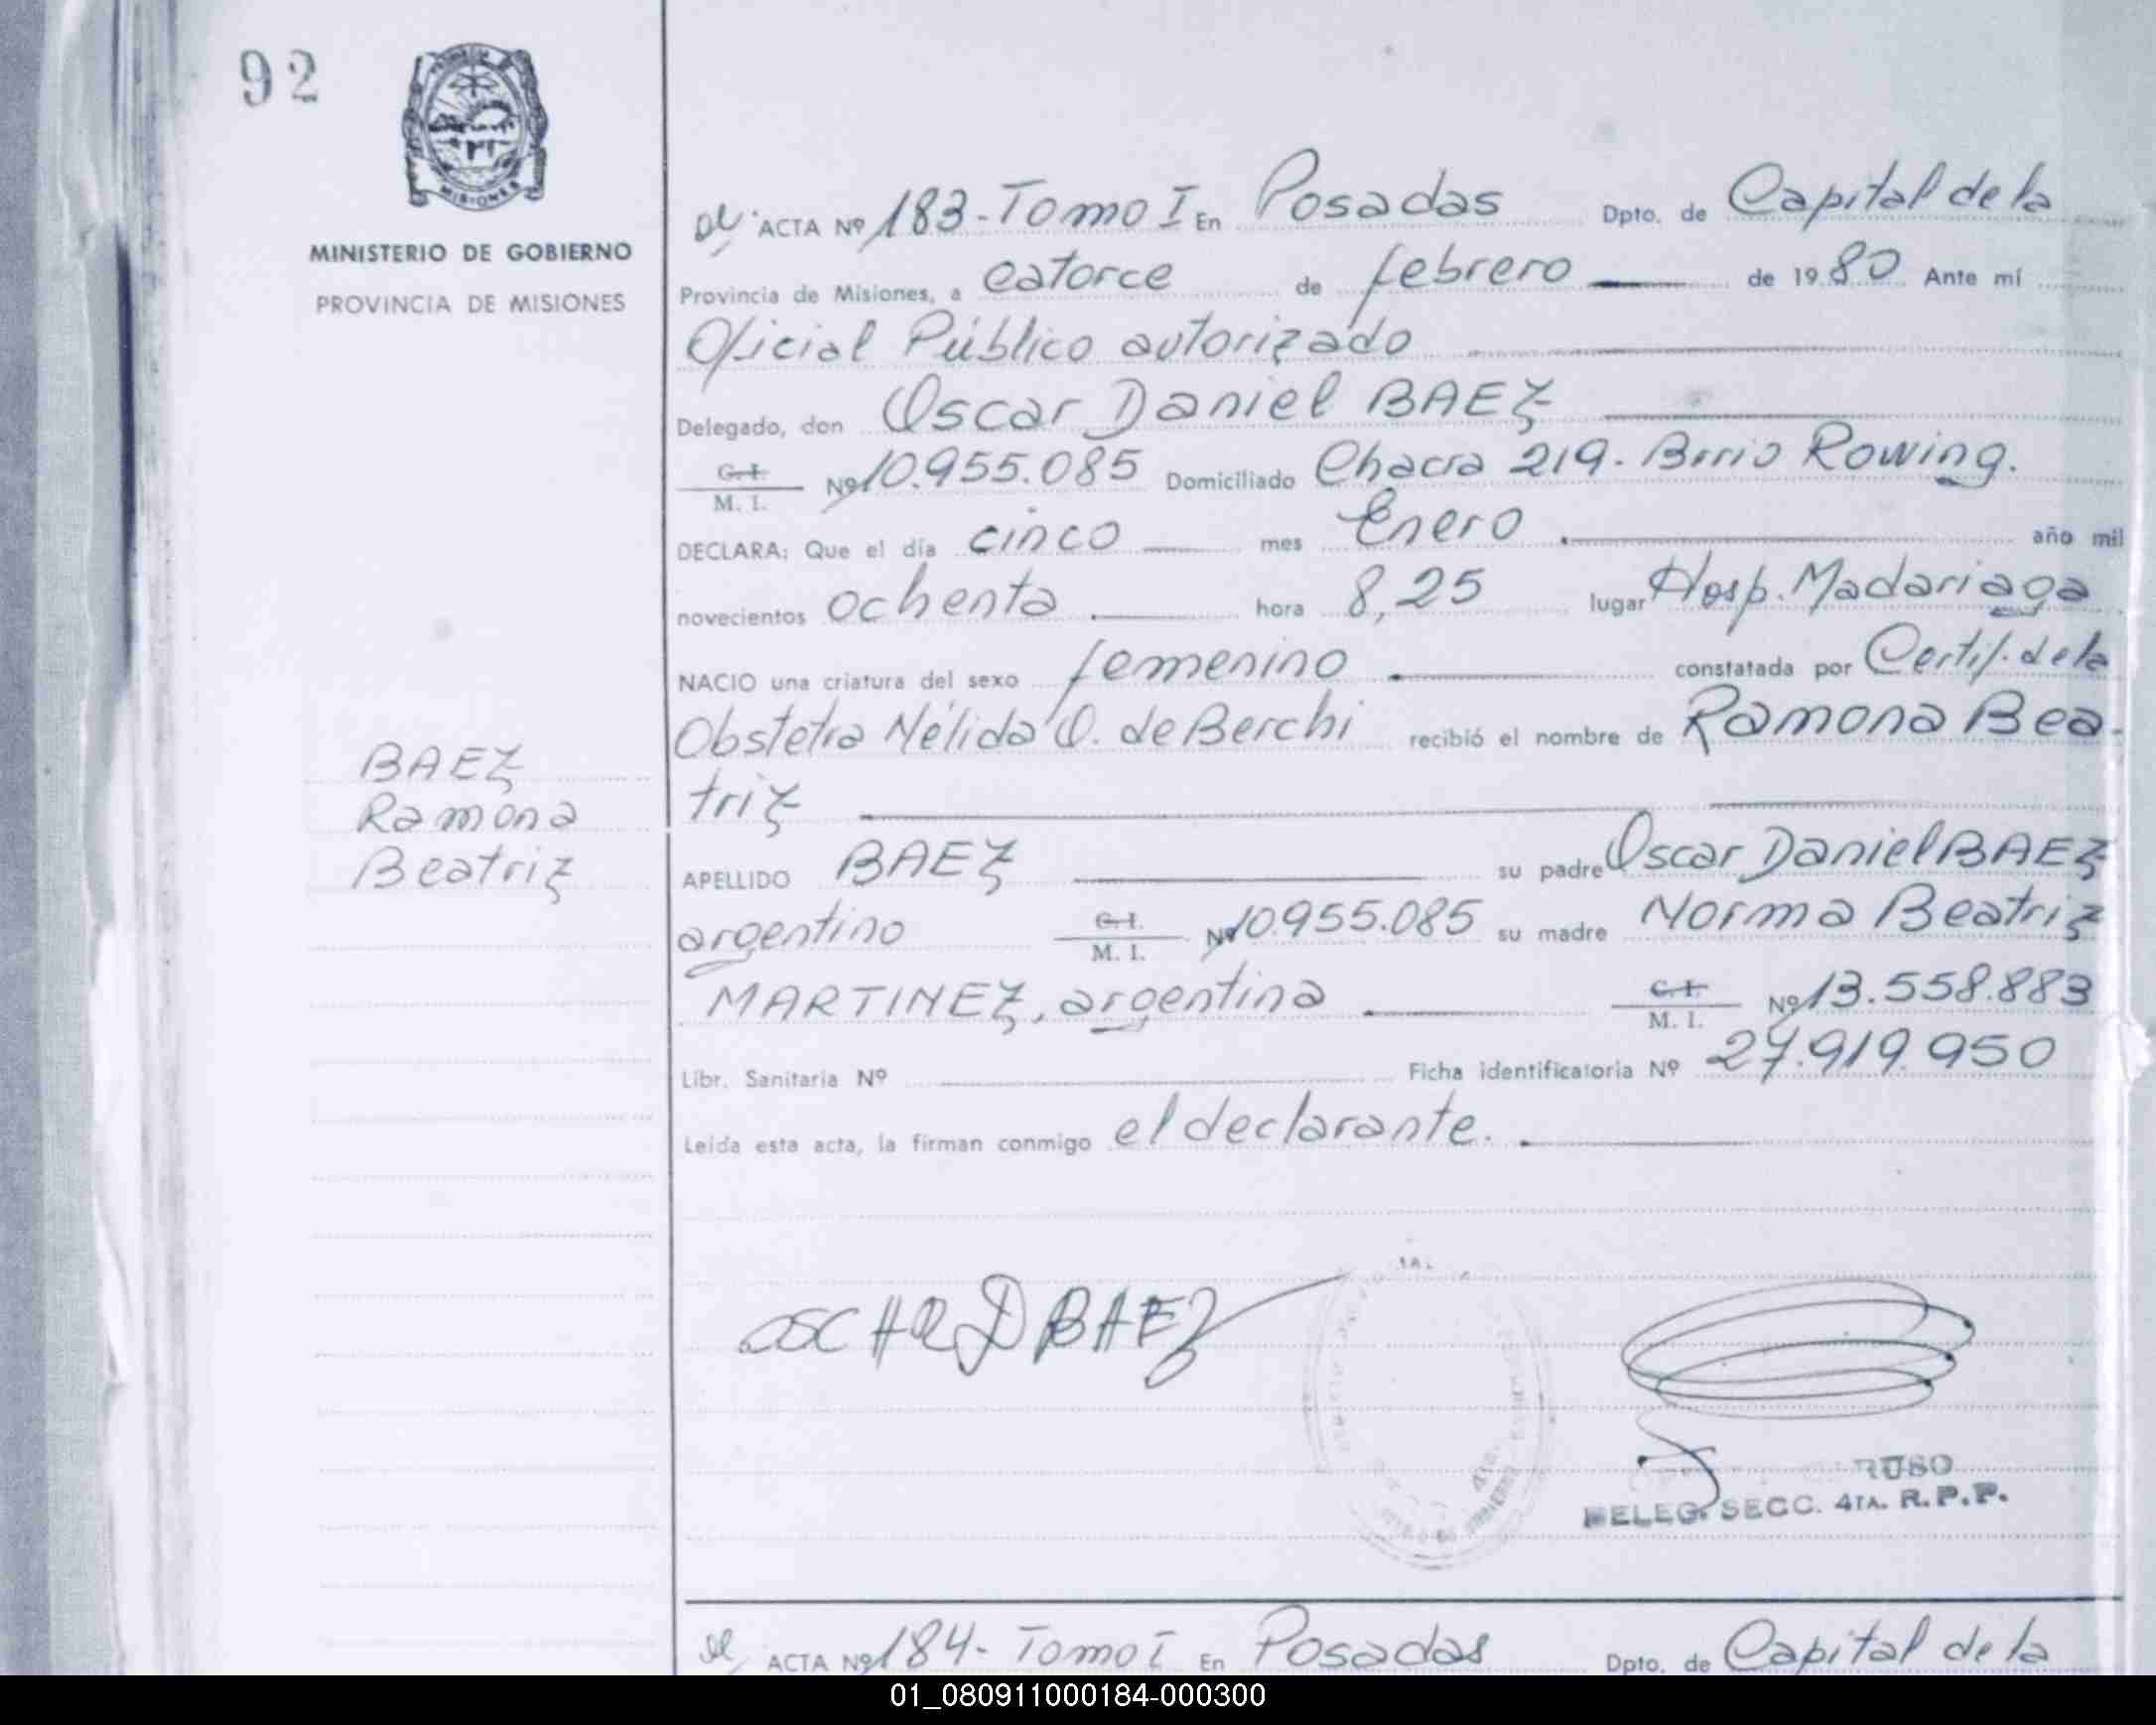 92
MISIONES
MINISTERIO DE GOBIERNO
PROVINCIA DE MISIONES
ACTA Nº 183-Tomo I En Posadas Dpto. de Capital de la
Provincia de Misiones, a catorce de febrero de 1980 Ante mí
Oficial Público autorizado
Delegado, don Oscar Daniel BAEZ
C. I.
M. I. Nº 10.955.085 Domiciliado Chacra 219. Brrio Rowing.
DECLARA: Que el día cinco mes Enero año mil
novecientos ochenta hora 8,25 lugar Hosp. Madariaga
NACIO una criatura del sexo femenino constatada por Certif. de la
Obstetra Nélida O. de Berchi recibió el nombre de Ramona Bea-
triz
BAEZ
Ramona
Beatriz
APELLIDO BAEZ su padre Oscar Daniel BAEZ
argentino C. I. M. I. Nº 10.955.085 su madre Norma Beatriz
MARTINEZ, argentina C. I. M. I. Nº 13.558.883
Libr. Sanitaria Nº Ficha identificatoria Nº 27.919.950
Leída esta acta, la firman conmigo el declarante.
OSCAR D BAEZ
RUSO
DELEG. SECC. 4TA. R.P.P.
ACTA Nº 184- Tomo I En Posadas Dpto. de Capital de la
01_080911000184-000300